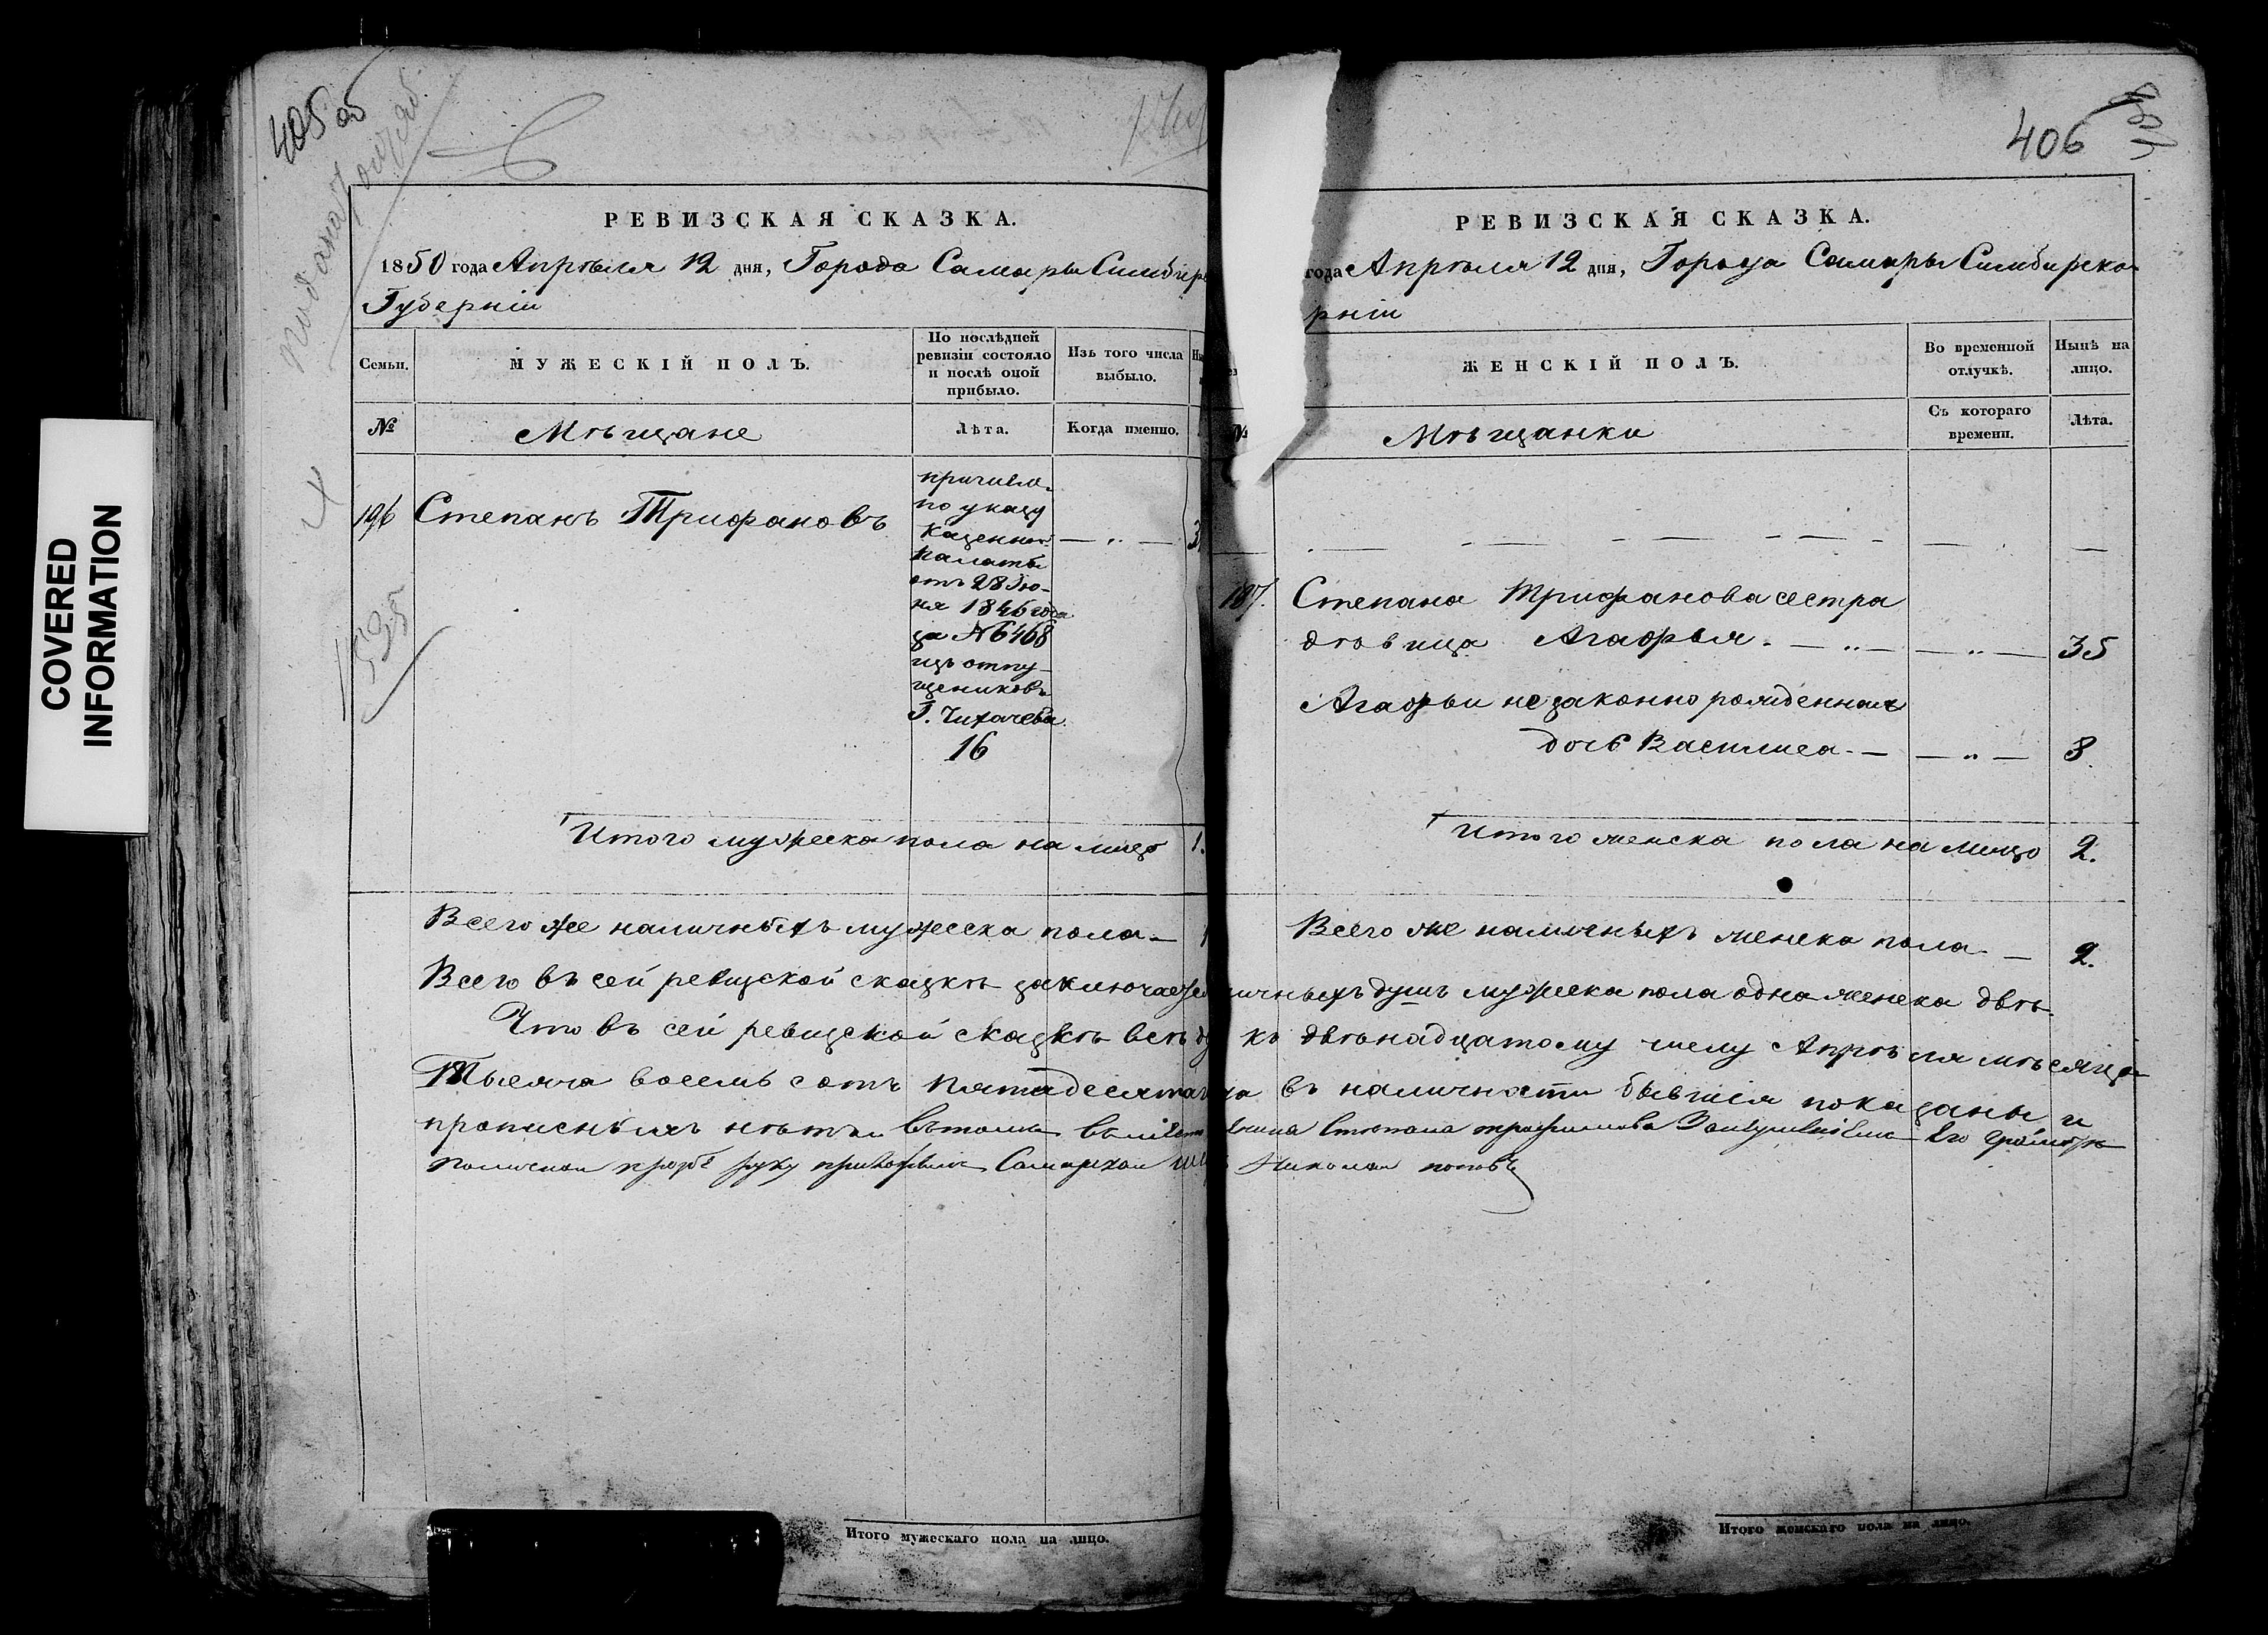 COVERED
INFORMATION
405 об
РЕВИЗСКАЯ СКАЗКА.
1850 года Апрѣля 12 дня, Города Самары Симбир
Губерніи
Семьи.
МУЖЕСКІЙ ПОЛЪ.
По послѣдней
ревизіи состояло
и послѣ оной
прибыло.
Изъ того числа
выбыло.
№
Мѣщане
Лѣта.
Когда именно.
196
Степанъ Трифановъ
причисле.
по указу
Казенной
Палаты
отъ 28 Iю-
ня 1846 года
за № 6468
изъ отпу-
щениковъ
Г. Чихачева
16
1595
Итого мужеска пола на лицо 1.
Всего же наличныхъ мужеска пола
406
РЕВИЗСКАЯ СКАЗКА.
года Апрѣля 12 дня, Города Самары Симбирско-
рніи
ЖЕНСКІЙ ПОЛЪ.
Во временной
отлучкѣ.
Нынѣ на
лицо.
Мѣщанки
Съ котораго
времени.
Лѣта.
Степана Трифанова сестра
дѣвица Агафья. 35
Агафьи незаконно рожденная
дочь Василиса 8.
Итого женска пола на лицо 2.
Всего же наличныхъ женска пола 2.
Всего въ сей ревизской сказкѣ заключается личныхъ душъ мужеска пола одна женска двѣ.
Что въ сей ревизской сказкѣ всѣ къ двѣнадцатому числу Апрѣля мѣсяца
Тысяча восемь сотъ пятидесятаг въ наличности бывшія показаны и
прописныхъ нѣтъ въ томъ Степана его
прозбе руку приложилъ Самарской Николай поповъ
Итого мужескаго пола на лицо.
Итого женскаго пола на лицо.